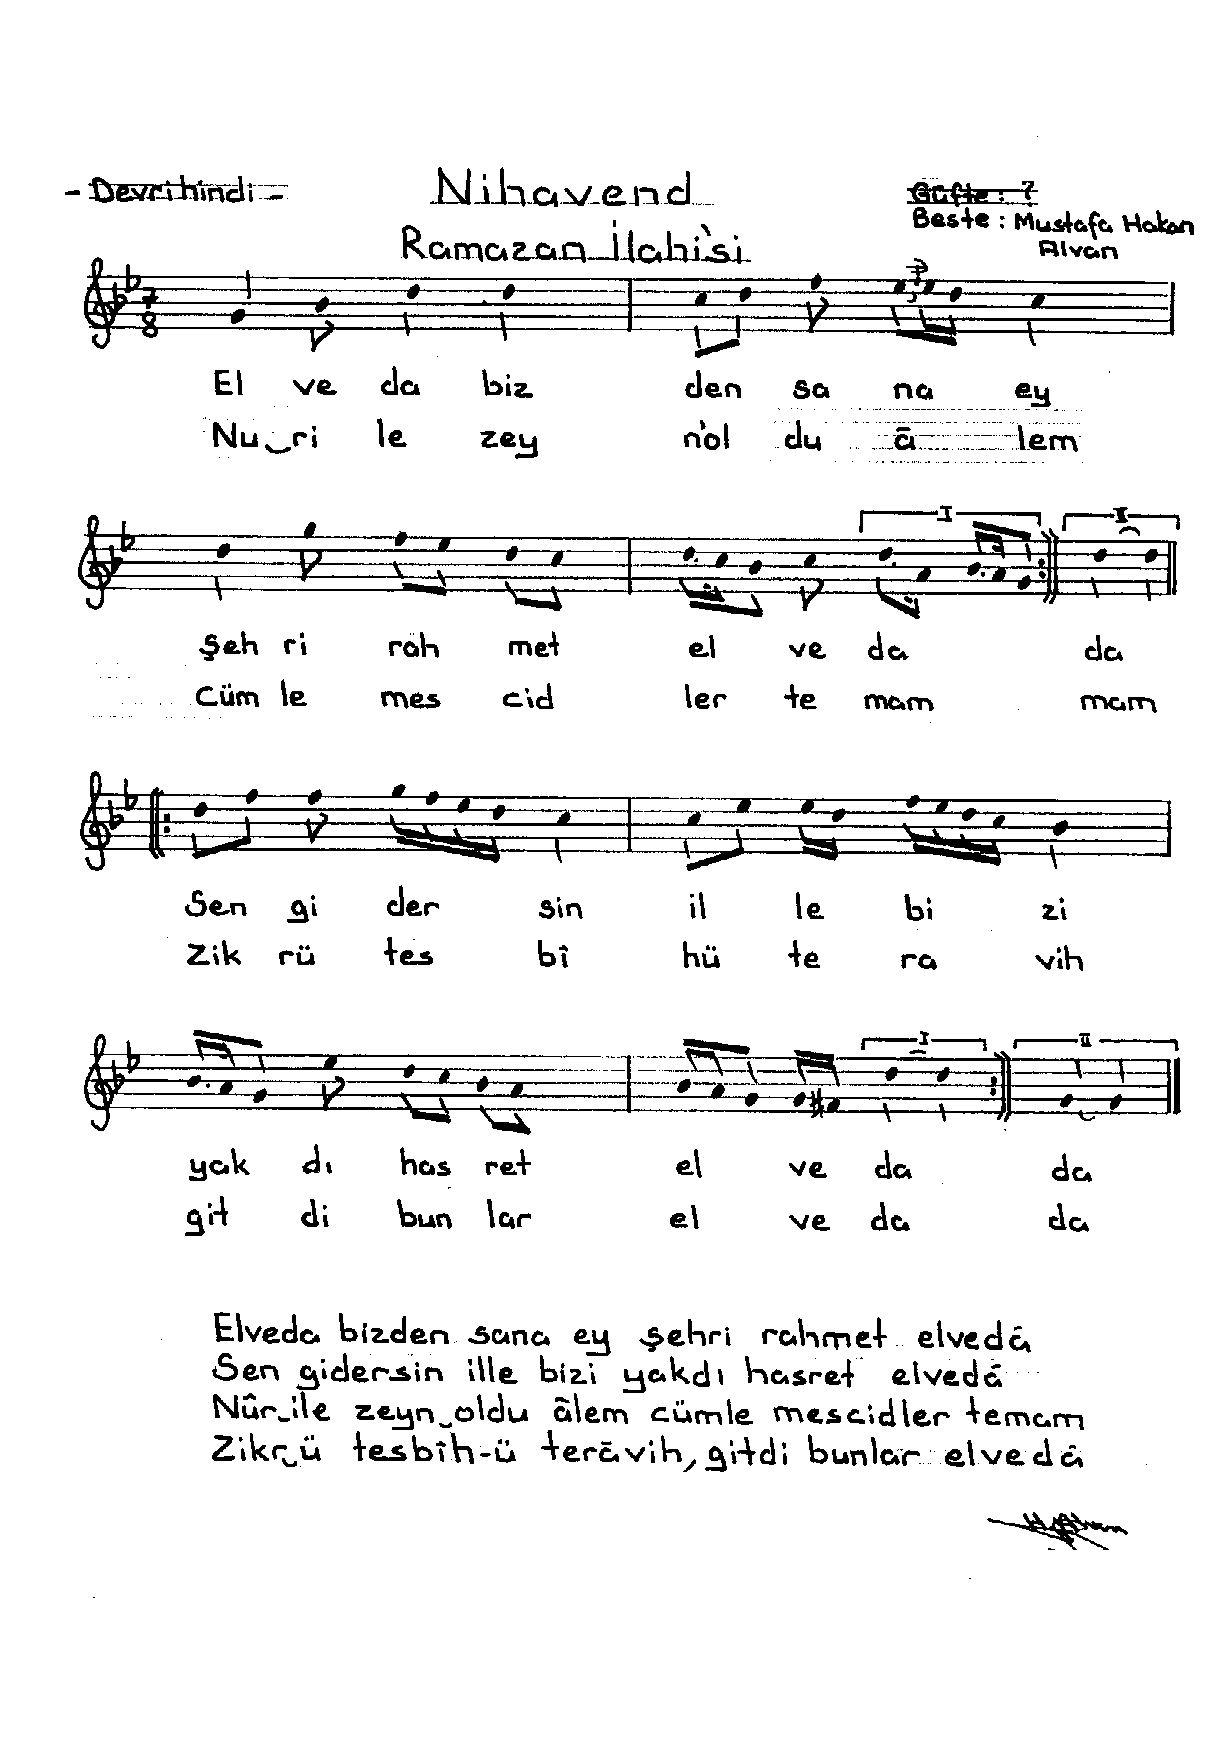 - Devrihindi -
Nihavend
Güfte : ?
Ramazan İlahi'si
Beste : Mustafa Hakan
Alvan
7
8
El ve da biz den sa na ey
Nu ri le zey n'ol du ā lem
I
II
Şeh ri rah met el ve da da
Cüm le mes cid ler te mam mam
Sen gi der sin il le bi zi
Zik rü tes bî hü te ra vih
I
II
yak dı has ret el ve da da
git di bun lar el ve da da
Elveda bizden sana ey şehri rahmet elvedâ
Sen gidersin ille bizi yakdı hasret elvedâ
Nûr ile zeyn oldu âlem cümle mescidler temam
Zikr ü tesbîh-ü terâvih, gitdi bunlar elvedâ